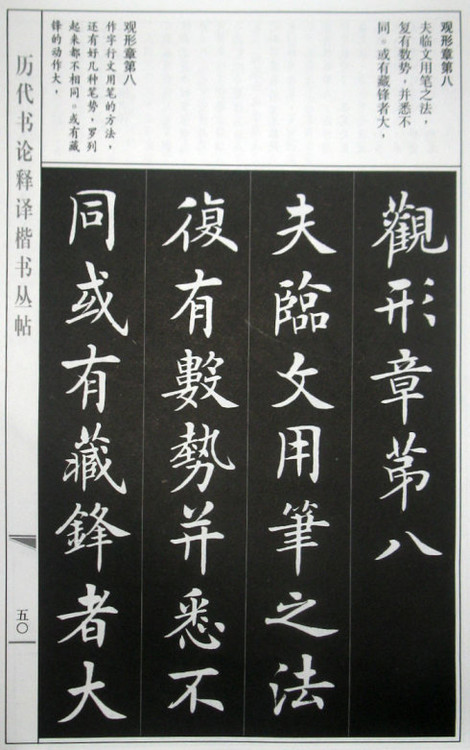 观形章第八
夫临文用笔之法，
复有数势，并悉不
同。或有藏锋者大，
观形章第八
作字行文用笔的方法，
还有好几种笔势，罗列
起来都不相同。或有藏
锋的动作大，
觀形章苐八
夫臨文用筆之法
復有數勢并悉不
同或有藏鋒者大
历代书论释译楷书丛帖
五〇